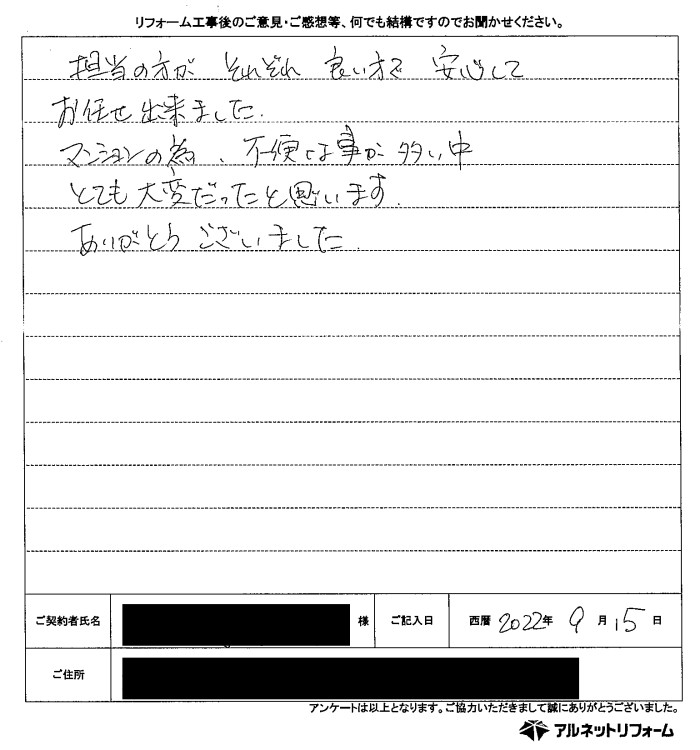 リフォーム工事後のご意見・ご感想等、何でも結構ですのでお聞かせください。
担当の方が それぞれ 良い方で 安心して
お任せ出来ました.
マンションの為、不便な事が多い中
とても大変だったと思います.
ありがとう ございました.
ご契約者氏名 様 ご記入日 西暦 2022年 9月 15日
ご住所
アンケートは以上となります。ご協力いただきまして誠にありがとうございました。
アルネットリフォーム